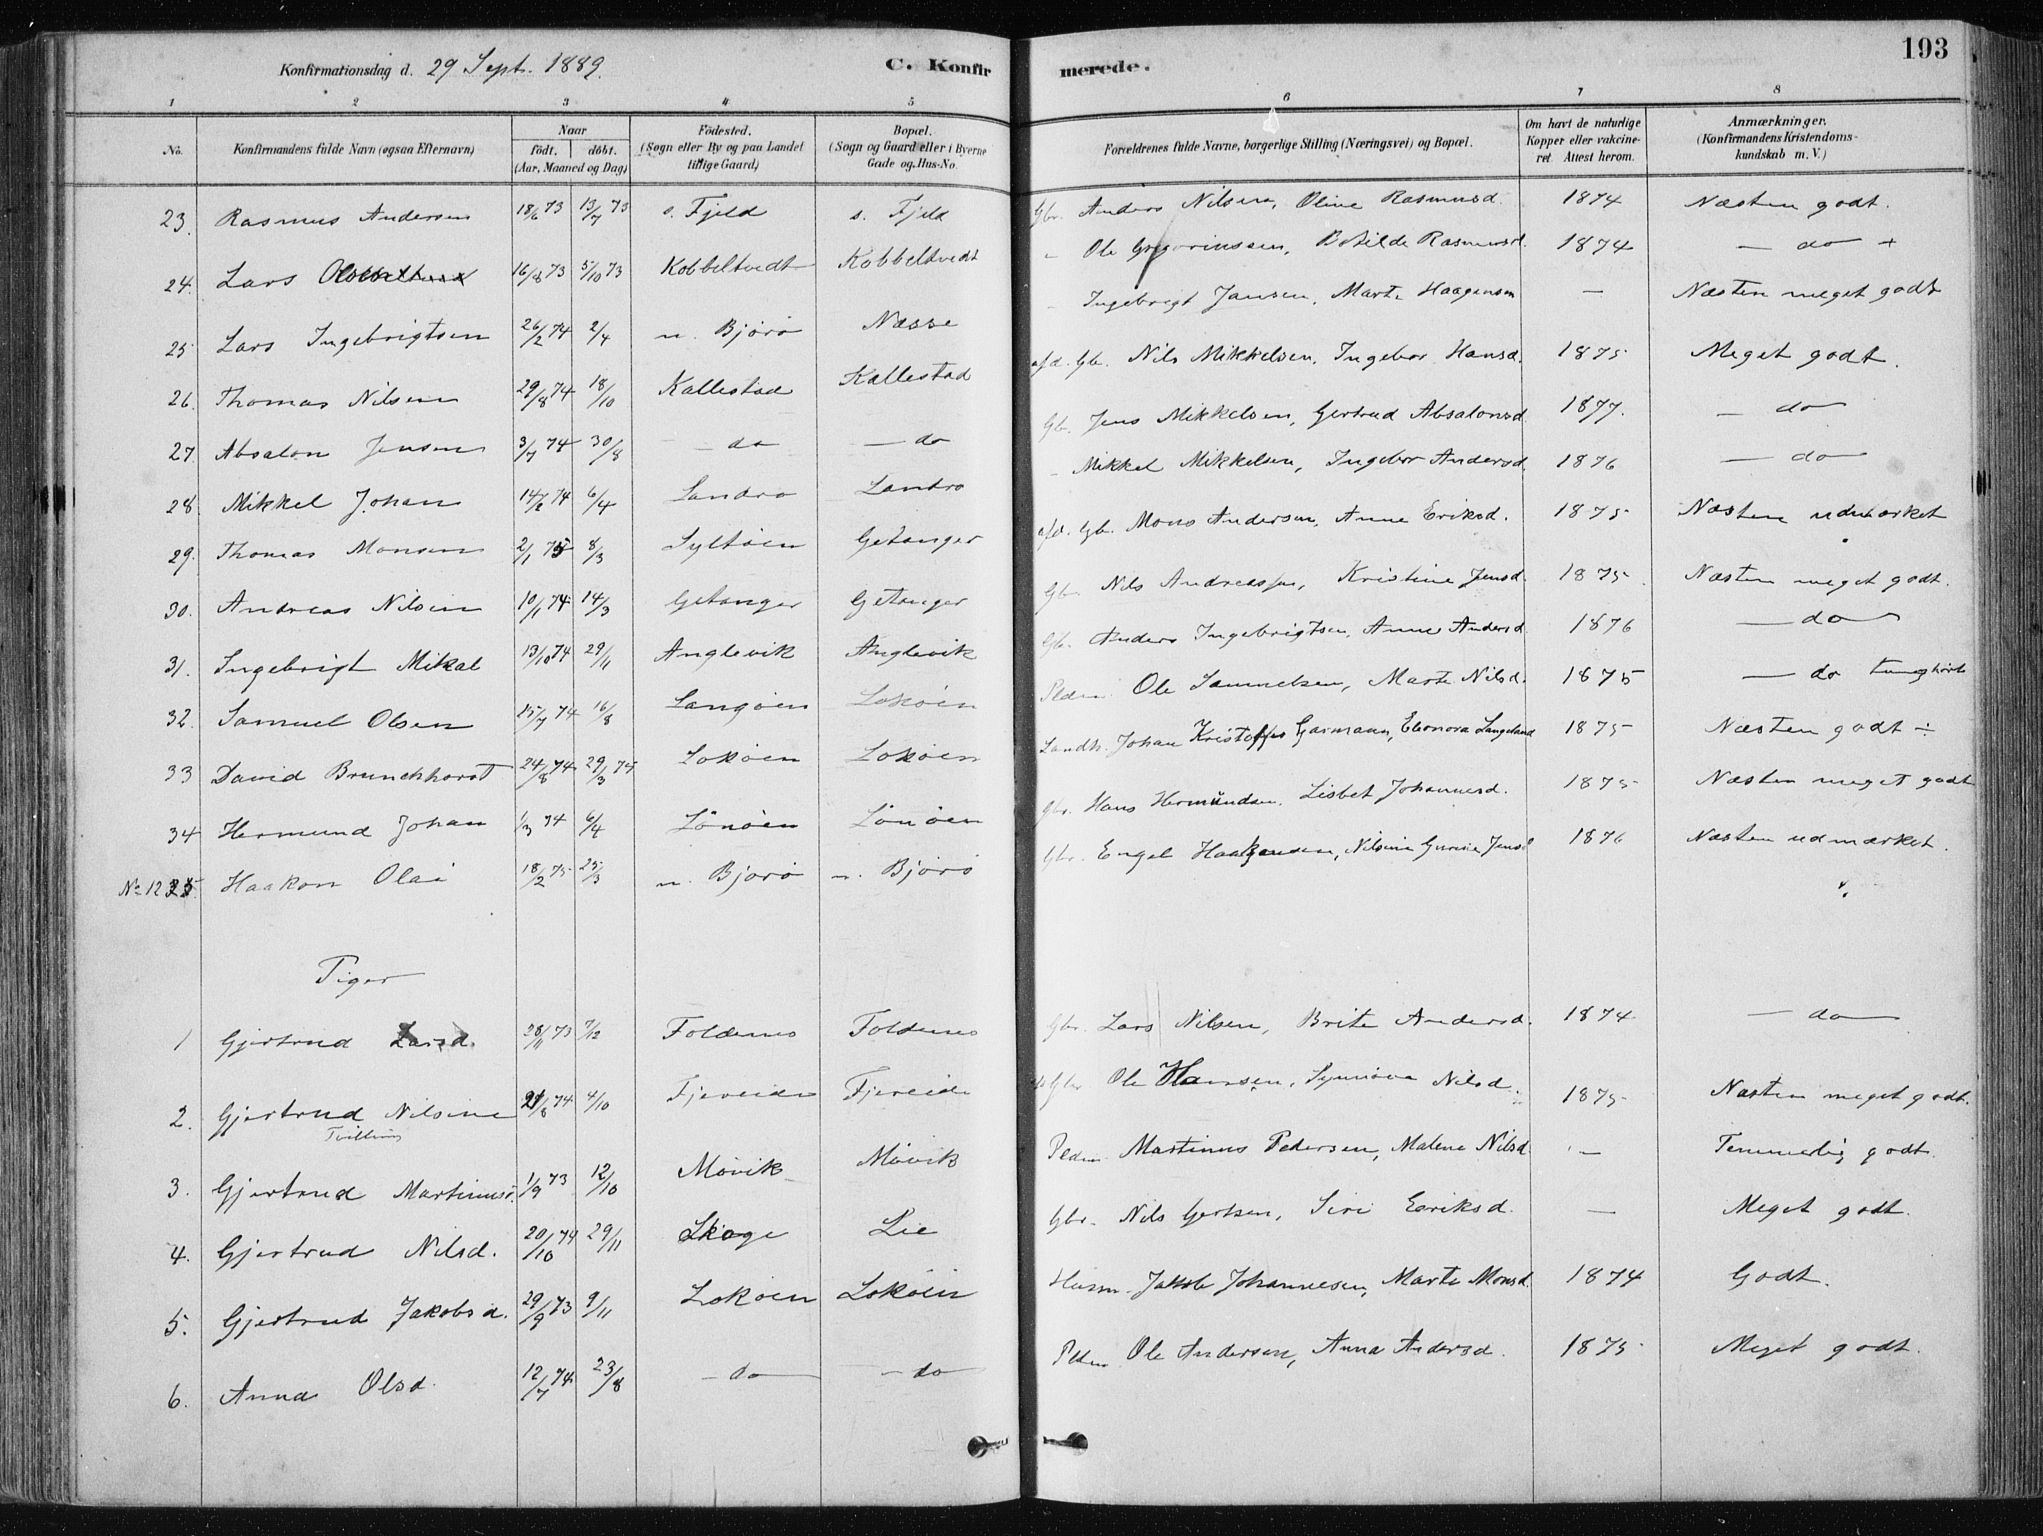 193
Konfirmationsdag d. 29 Sept. 1889. C. Konfirmerede.
1 2 3 4 5 6 7 8
No. Konfirmandens fulde Navn (ogsaa Efternavn) Naar födt. döbt. (Aar, Maaned og Dag) Födested. (Sogn eller By og paa Landet tillige Gaard) Bopæl. (Sogn og Gaard eller i Byerne Gade og Hus-No. Forældrenes fulde Navne, borgerlige Stilling (Næringsvei) og Bopæl. Om havt de naturlige Kopper eller vakcineret. Attest herom. Anmærkninger. (Konfirmandens Kristendomskundskab m. V.)
23. Rasmus Andersen 18/6 73 13/7 73 s. Fjeld s. Fjeld Gbr. Anders Nilsen, Oline Rasmusd. 1874 Næsten godt.
24. Lars 16/8 73 5/10 73 Kobbeltvedt Kobbeltvedt - Ole Gregoriussen, Botilde Rasmusd. 1874 — do +
25 Lars Ingebrigtsen 26/2 74 2/4 n. Bjørø Næsse - Ingebrigt Jansen, Marte Haagensen — Næsten meget godt
26. Thomas Nilsen 29/8 74 18/10 Kallestad Kallestad afd. Gbr. Nils Mikkelsen, Ingebor Hansd. 1875 Meget godt.
27. Absalon Jensen 3/7 74 30/8 — do — do Gbr. Jens Mikkelsen, Gertrud Absalonsd 1877. — do
28. Mikkel Johan 14/2 74 6/4 Landro Landro - Mikkel Mikkelsen, Ingebor Andersd. 1876 — do
29. Thomas Monsen 2/1 75 8/3 Syltøen Getanger afd. Gbr. Mons Andersen, Anne Eriksd. 1875 Næsten udmærket
30. Andreas Nilsen 10/1 74 14/3 Getanger Getanger Gbr. Nils Andreassen, Kristine Jensd. 1875 Næsten meget godt.
31. Ingebrigt Mikal 13/10 74 29/11 Anglevik Anglevik Gbr. Anders Ingebrigtsen, Anne Andersd. 1876 — do
32. Samuel Olsen 15/7 74 16/8 Langøen Lokøen Pldm. Ole Samuelsen, Marte Nilsd. 1875 — do tunghørt
33 David Brunchhorst 24/8 74 29/3 75 Lokøen Lokøen Landh. Johan Kristoffer Garmann, Eleonora Langeland 1875 Næsten godt ÷
34 Hermund Johan 1/3 74 6/4 Lønøen Lønøen Gbr. Hans Hermundsen. Lisbet Johannesd. 1875 Næsten meget godt
No 12 35. Haakon Olai 18/2 75 25/3 n. Bjørø n. Bjørø Gbr. Engel Haakonsen, Nilsine Gurine Jensd 1876 Næsten udmærket.
Piger
1 Gjertrud Larsd. 28/11 73 7/12 Foldenes Foldenes Gbr. Lars Nilsen, Brite Andersd. 1874 — do
2. Gjertrud Nilsine 21/8 74 4/10 Fjereide Fjereide Gbr. Ole Hansen, Synnøva Nilsd. 1875 Næsten meget godt.
Tvilling
3. Gjertrud Martinusd. 1/9 73 12/10 Møvik Møvik Pldm. Martinus Pedersen, Malene Nilsd. — Temmelig godt.
4. Gjertrud Nilsd. 20/10 74 29/11 Skoge Lie Gbr. Nils Gertsen, Siri Eeriksd. — Meget godt.
5. Gjertrud Jakobsd. 29/9 73 9/11 Lokøen Lokøen Husm. Jakob Johannesen, Marte Monsd. 1874 Godt.
6. Anna Olsd. 12/7 74 23/8 — do — do Pldm. Ole Andersen, Anna Andersd. 1875 Meget godt.